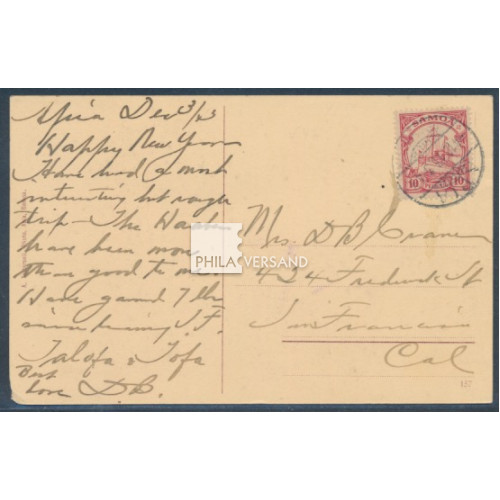 Apia Dec 3/13
Happy New Year
Have had a most
interesting but rough
trip - The
have been more
than good to me
Have gained 7 lbs
since leaving S.F.
Talofa & Tofa
Best
Love D.B.
SAMOA
10 10
Mrs. D B Crane
424 Frederick St
San Francisco
Cal
137
PHILA VERSAND